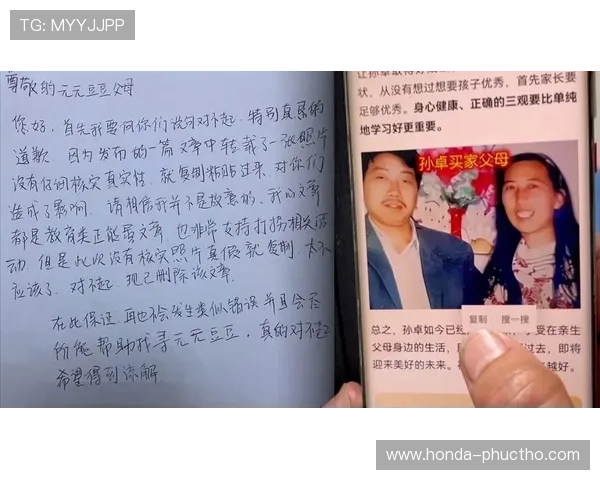 TG: MYYJJPP
尊敬的元元豆豆父母
您好，首先我要向你们说句对不起，特别真恳的
道歉，因为发布的一篇文章中转载了一张照片
没有仔细核实真实性，就复制粘贴过来，对你们
造成了影响，请相信我并不是故意的，我的文章
都是教育类正能量文章，也非常支持打拐相关活
动，但是此次没有核实照片真假就复制，太不
应该了，对不起，现已删除该文章。
在此保证，再也不会发生类似错误并且会尽
所能帮助找寻元元豆豆，真的对不起
希望得到谅解
让孙卓取得好成
状，从没有想过想要孩子优秀，首先家长要
足够优秀。身心健康、正确的三观要比单纯
地学习好更重要。
孙卓买家父母
复制 搜一搜
总之，孙卓如今已经 受在亲生
父母身边的生活， 过去，即将
迎来美好的未来。 越好。
www.honda-phuctho.com